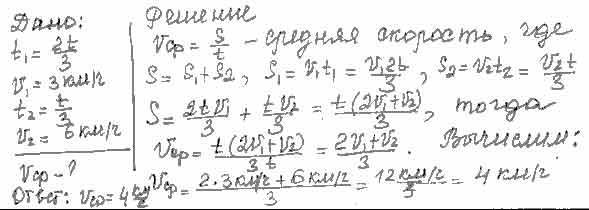 Дано:
t₁ = 2t/3
v₁ = 3 км/г
t₂ = t/3
v₂ = 6 км/г
vср - ?
Ответ: vср = 4 км/г
Решение
vср = S/t - средняя скорость, где
S = S₁ + S₂, S₁ = v₁t₁ = v₁2t/3, S₂ = v₂t₂ = v₂t/3
S = 2tv₁/3 + tv₂/3 = t(2v₁+v₂)/3, тогда
vср = t(2v₁+v₂)/3t = 2v₁+v₂/3. Вычислим:
vср = 2·3 км/г + 6 км/г/3 = 12 км/г/3 = 4 км/г